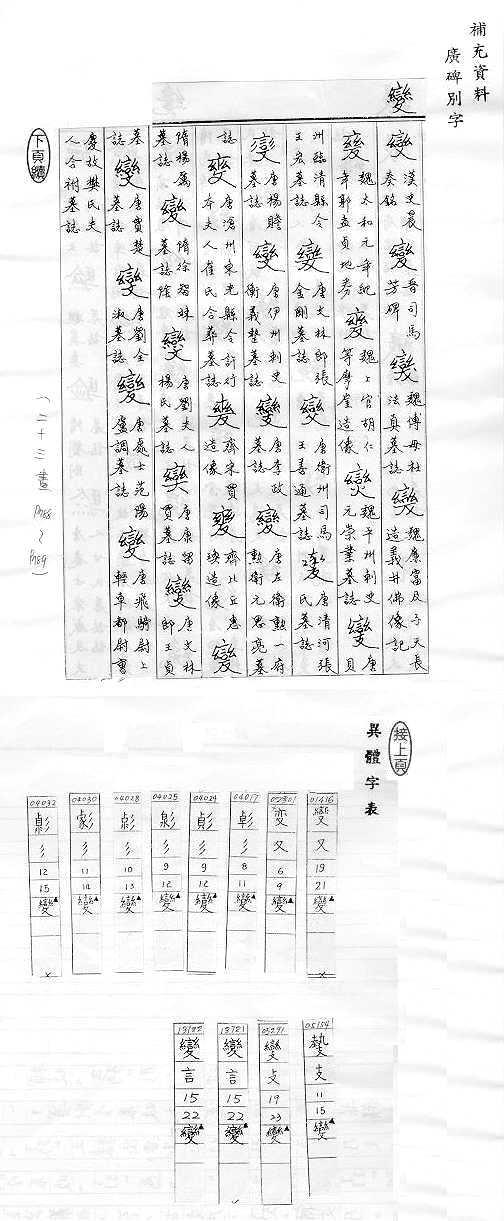 補充資料
廣碑別字
變
變 漢史晨奏銘 變 晉司馬芳碑 變 魏傅母杜法真墓誌 變 魏廉富及子天長造義井佛像記
變 魏太和元年郭孟買地券 變 魏上官胡仁等摩崖造像 變 魏平州刺史元崇業墓誌 變 唐貝
州臨清縣令王宏墓誌 變 唐文林郎張金剛墓誌 變 唐衛州司馬王善通墓誌 變 唐清河張氏墓誌
變 唐楊贍墓誌 變 唐伊州刺史衡義整墓誌 變 唐李政墓誌 變 唐左衛勳一府勳衛元思亮墓
誌 變 唐滄州東光縣令許行本夫人崔氏合葬墓誌 變 齊宋買造像 變 齊比丘惠瑍造像 變
隋楊厲墓誌 變 隋徐智竦墓誌陰 變 唐劉夫人楊氏墓誌 變 唐康留買墓誌 變 唐文林郎王貞
墓誌 變 唐賈楚墓誌 變 唐劉全淑墓誌 變 唐處士范陽盧調墓誌 變 唐飛騎尉上輕車都尉曹
慶故樊氏夫人合祔墓誌
下頁續
(二十三畫 P1158~P1159)
接上頁
異體字表
04032 04030 04028 04025 04024 04017 02301 01416
彡 彡 彡 彡 彡 彡 又 又
12 11 10 9 9 8 6 19
15 14 13 12 12 11 9 21
變 變 變 變 變 變 變 變
13722 13721 05291 05154
變 變 變
言 言 攴 支
15 15 19 11
22 22 23 15
變 變 變 變